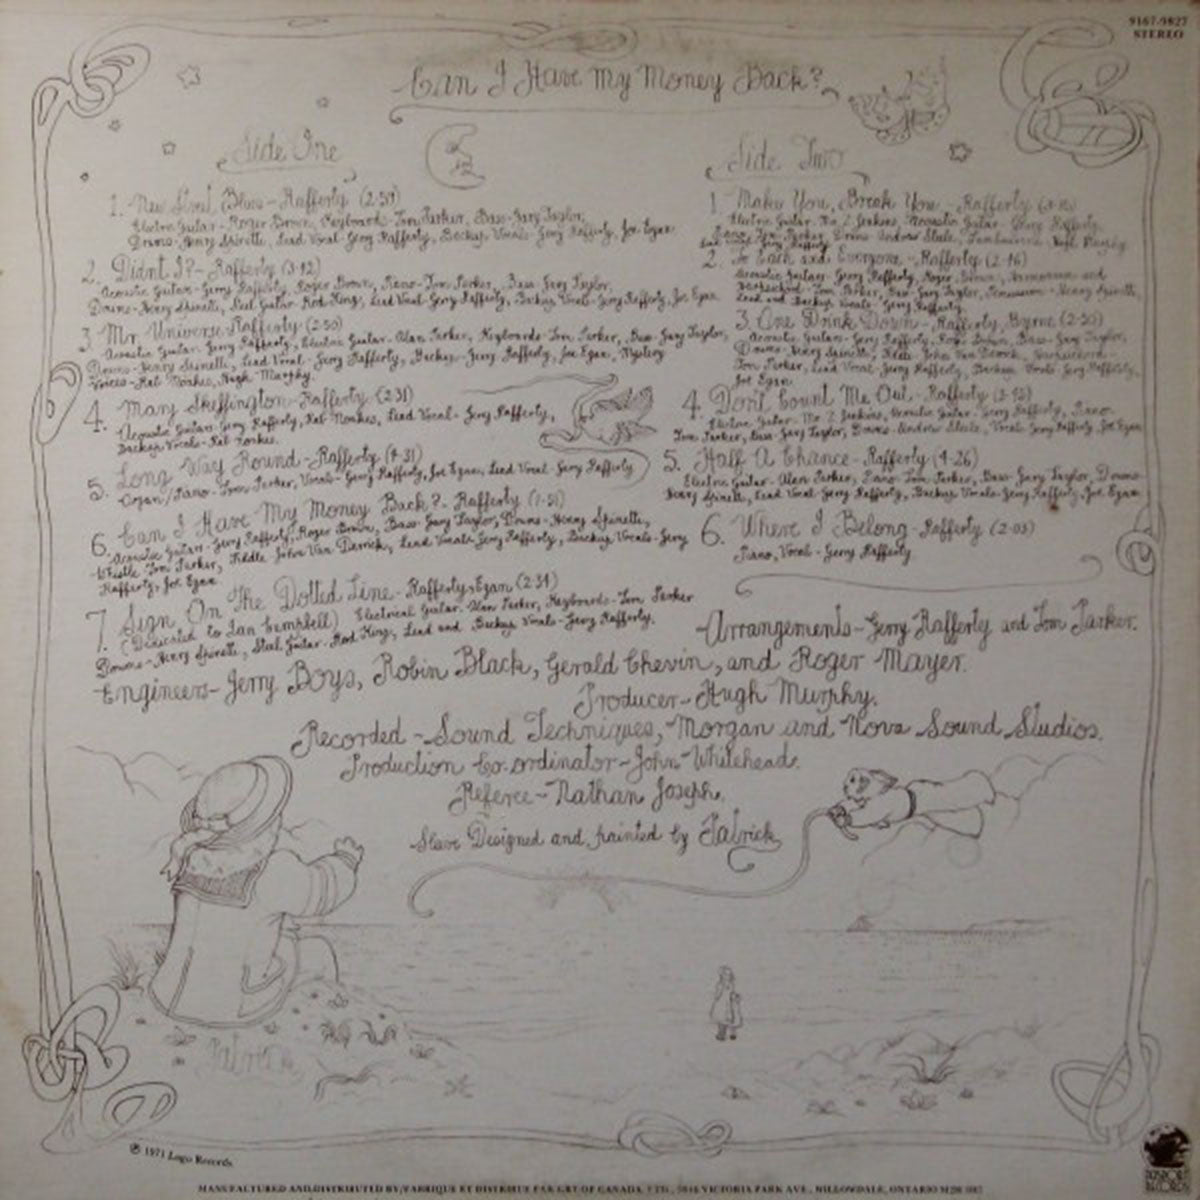 9167-9827
STEREO
Can I Have My Money Back?
Side One
1. New Street Blues - Rafferty (2:59)
Electric Guitar - Roger Brown, Keyboards - Tom Parker, Bass - Gary Taylor,
Drums - Henry Spinetti, Lead Vocal - Gerry Rafferty, Backup Vocals - Gerry Rafferty, Joe Egan
2. Didn't I? - Rafferty (3:42)
Acoustic Guitar - Gerry Rafferty, Roger Brown, Piano - Tom Parker, Bass - Gary Taylor,
Drums - Henry Spinetti, Steel Guitar - Rod King, Lead Vocal - Gerry Rafferty, Backup Vocals - Gerry Rafferty, Joe Egan
3. Mr. Universe - Rafferty (2:50)
Acoustic Guitar - Gerry Rafferty, Electric Guitar - Alan Parker, Keyboards - Tom Parker, Bass - Gary Taylor,
Drums - Henry Spinetti, Lead Vocal - Gerry Rafferty, Backup - Gerry Rafferty, Joe Egan, Mystery
Voices - Rab Noakes, Hugh Murphy.
4. Mary Skeffington - Rafferty (2:31)
Acoustic Guitar - Gerry Rafferty, Rab Noakes, Lead Vocal - Gerry Rafferty,
Backup Vocals - Rab Noakes.
5. Long Way Round - Rafferty (4:31)
Organ/Piano - Tom Parker, Vocals - Gerry Rafferty, Joe Egan, Lead Vocal - Gerry Rafferty
6. Can I Have My Money Back? - Rafferty
Acoustic Guitar - Gerry Rafferty, Roger Brown, Bass - Gary Taylor, Drums - Henry Spinetti,
Whistle Tom Parker, Fiddle John Van Derrick, Lead Vocals - Gerry Rafferty, Backup Vocals - Gerry
Rafferty, Joe Egan
7. Sign On The Dotted Line - Rafferty, Egan
(Dedicated to Ian Campbell) Electrical Guitar - Alan Parker, Keyboards - Tom Parker
Drums - Henry Spinetti, Steel Guitar - Rod King, Lead and Backup Vocals - Gerry Rafferty.
Side Two
1. Make You, Break You - Rafferty
Electric Guitar - Mr. Z Jenkins, Acoustic Guitar - Gerry Rafferty,
Piano - Tom Parker, Drums - Andrew Steele, Tambourine Hugh Murphy
Lead Vocal - Gerry Rafferty
2. To Each and Everyone - Rafferty (2:46)
Acoustic Guitar - Gerry Rafferty, Roger Brown, Harmonium and
Harpsichord - Tom Parker, Bass - Gary Taylor, Percussion - Henry Spinetti,
Lead and Backup Vocals - Gerry Rafferty
3. One Drink Down - Rafferty, Byrne (2:50)
Acoustic Guitar - Gerry Rafferty, Roger Brown, Bass - Gary Taylor,
Drums - Henry Spinetti, Fiddle John Van Derrick, Harpsichord -
Tom Parker, Lead Vocal - Gerry Rafferty, Backup Vocals - Gerry Rafferty,
Joe Egan
4. Don't Count Me Out - Rafferty
Electric Guitar - Mr. Z Jenkins, Acoustic Guitar - Gerry Rafferty, Piano -
Tom Parker, Bass - Gary Taylor, Drums - Andrew Steele, Vocals - Gerry Rafferty, Joe Egan
5. Half A Chance - Rafferty (4:26)
Electric Guitar - Alan Parker, Piano - Tom Parker, Bass - Gary Taylor, Drums -
Henry Spinetti, Lead Vocal - Gerry Rafferty, Backup Vocals - Gerry Rafferty, Joe Egan
6. Where I Belong - Rafferty (2:03)
Piano, Vocal - Gerry Rafferty
Arrangements - Gerry Rafferty and Tom Parker.
Engineers - Jerry Boys, Robin Black, Gerald Chevin, and Roger Mayer.
Producer - Hugh Murphy.
Recorded - Sound Techniques, Morgan and Nova Sound Studios.
Production Co-ordinator - John Whitehead.
Referee - Nathan Joseph.
Sleeve Designed and painted by Patrick
Patrick
℗ 1971 Logo Records
MANUFACTURED AND DISTRIBUTED BY/FABRIQUE ET DISTRIBUE PAR GRT OF CANADA LTD., VICTORIA PARK AVE., WILLOWDALE, ONTARIO
PASSPORT
RECORDS